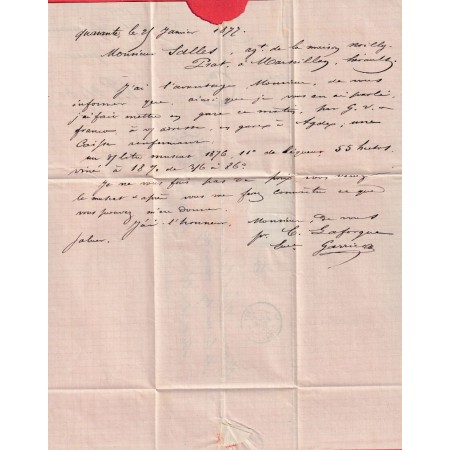 Quarante, le 25 Janvier 1877.
Monsieur Salles, agt de la maison Noilly
Prat, à Marseillan, Hérault,
J'ai l'avantage Monsieur, de vous
informer que, ainsi que je vous en ai parlé,
j'ai fait mettre en gare ce matin, par G. V.
franco, à en gare à Agde, une
Caisse renfermant
un litre muscat 1876 11° de liqueur, 55 hectos.
viné à 18% de 3/6 à 86°
Je ne vous fais pas de prix, vous verrez
le muscat & après vous me ferez connaître ce que
vous pouvez m'en donner.
J'ai l'honneur, Monsieur de vous
saluer.
pr. C. Laforgue